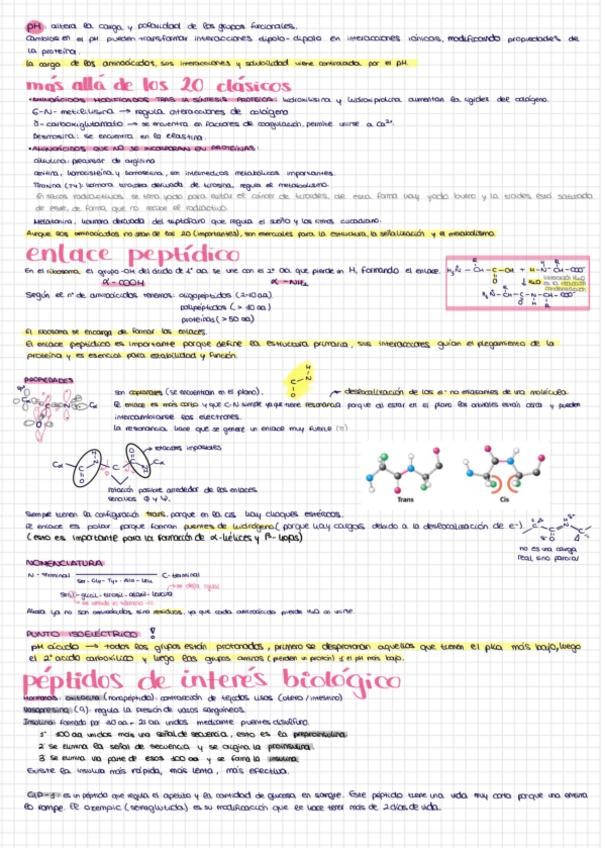 pH: altera la carga y polaridad de los grupos funcionales.
Cambios en el pH pueden transformar interacciones dipolo-dipolo en interacciones iónicas, modificando propiedades de
la proteína.
la carga de los aminoácidos, sus interacciones y solubilidad viene controlada por el pH.
más allá de los 20 clásicos
· AMINOÁCIDOS MODIFICADOS TRAS LA SÍNTESIS PROTEICA: hidroxilisina y hidroxiprolina aumentan la rigidez del colágeno.
6-N-metillisina → regula interacciones de colágeno
γ-carboxiglutamato → se encuentra en factores de coagulación, permite unirse a Ca²⁺.
Desmosina: se encuentra en la elastina.
· AMINOÁCIDOS QUE NO SE INCORPORAN EN PROTEÍNAS:
citrulina: precursor de arginina
ornitina, homocisteína y homoserina, son intermedios metabólicos importantes.
Tiroxina (T4): hormona tiroidea derivada de tirosina, regula el metabolismo.
Melatonina, hormona derivada del triptófano que regula el sueño y los ritmos circadianos.
Aunque son aminoácidos no están de los 20 (importantes), son esenciales para la estructura, la señalización y el metabolismo.
enlace peptídico
En el ribosoma, el grupo -OH del ácido de 1º aa. se une con el 2º aa. que pierde un H, formando el enlace.
α-COOH α-NH₂
Según el nº de aminoácidos tenemos: oligopéptidos (2-10 aa)
polipéptidos (> 10 aa)
proteínas (> 50 aa)
El ribosoma se encarga de formar los enlaces.
El enlace peptídico es importante porque define la estructura primaria, sus interacciones guían el plegamiento de la
proteína y es esencial para estabilidad y función.
PROPIEDADES
son coplanares (se encuentran en el plano).
deslocalización de los e- no enlazantes de una molécula.
El enlace es más corto que C-N simple ya que tiene resonancia porque al estar en el plano los orbitales están cerca y pueden
intercambiarse los electrones.
la resonancia hace que se genere un enlace muy fuerte (π)
rotaciones imposibles
rotación posible alrededor de los enlaces
sencillos Φ y Ψ.
Trans Cis
Siempre tienen la configuración trans, porque en la cis hay choques estéricos.
El enlace es polar porque forman puentes de hidrógeno (porque hay cargas debido a la deslocalización de e-)
(esto es importante para la formación de α-hélices y β-hojas)
no es una carga
real, sino parcial
NOMENCLATURA
N-terminal C-terminal
Ser-Gly-Tyr-Ala-Leu
se deja igual
Seril-glicil-tirosil-alanil-leucina
Ahora ya no son aminoácidos sino residuos, ya que cada aminoácido pierde H₂O al unirse.
PUNTO ISOELÉCTRICO !
pH ácido → todos los grupos están protonados, primero se desprotonan aquellos que tienen el pka más bajo, luego
el 2º ácido carboxílico y luego los grupos aminos (pierden un protón) si el pH más bajo.
péptidos de interés biológico
Hormonas: oxitocina (nonapéptido): contracción de tejidos lisos (útero/intestino)
Vasopresina (9): regula la presión de vasos sanguíneos.
Insulina: formado por 30 aa - 21 aa unidos mediante puentes disulfuro.
1º 100 aa unidos más una señal de secuencia, esto es la preproinsulina
2 se elimina la señal de secuencia y se origina la proinsulina.
3 se elimina una parte de esos 100 aa y se forma la insulina
Existe la insulina más rápida, más lenta, más efectiva.
GLP-1: es un péptido que regula el apetito y la cantidad de glucosa en sangre. Este péptido tiene una vida muy corta porque una enzima
lo rompe. El ozempic (semaglutida) es su modificación que le hace tener más de 2 días de vida.